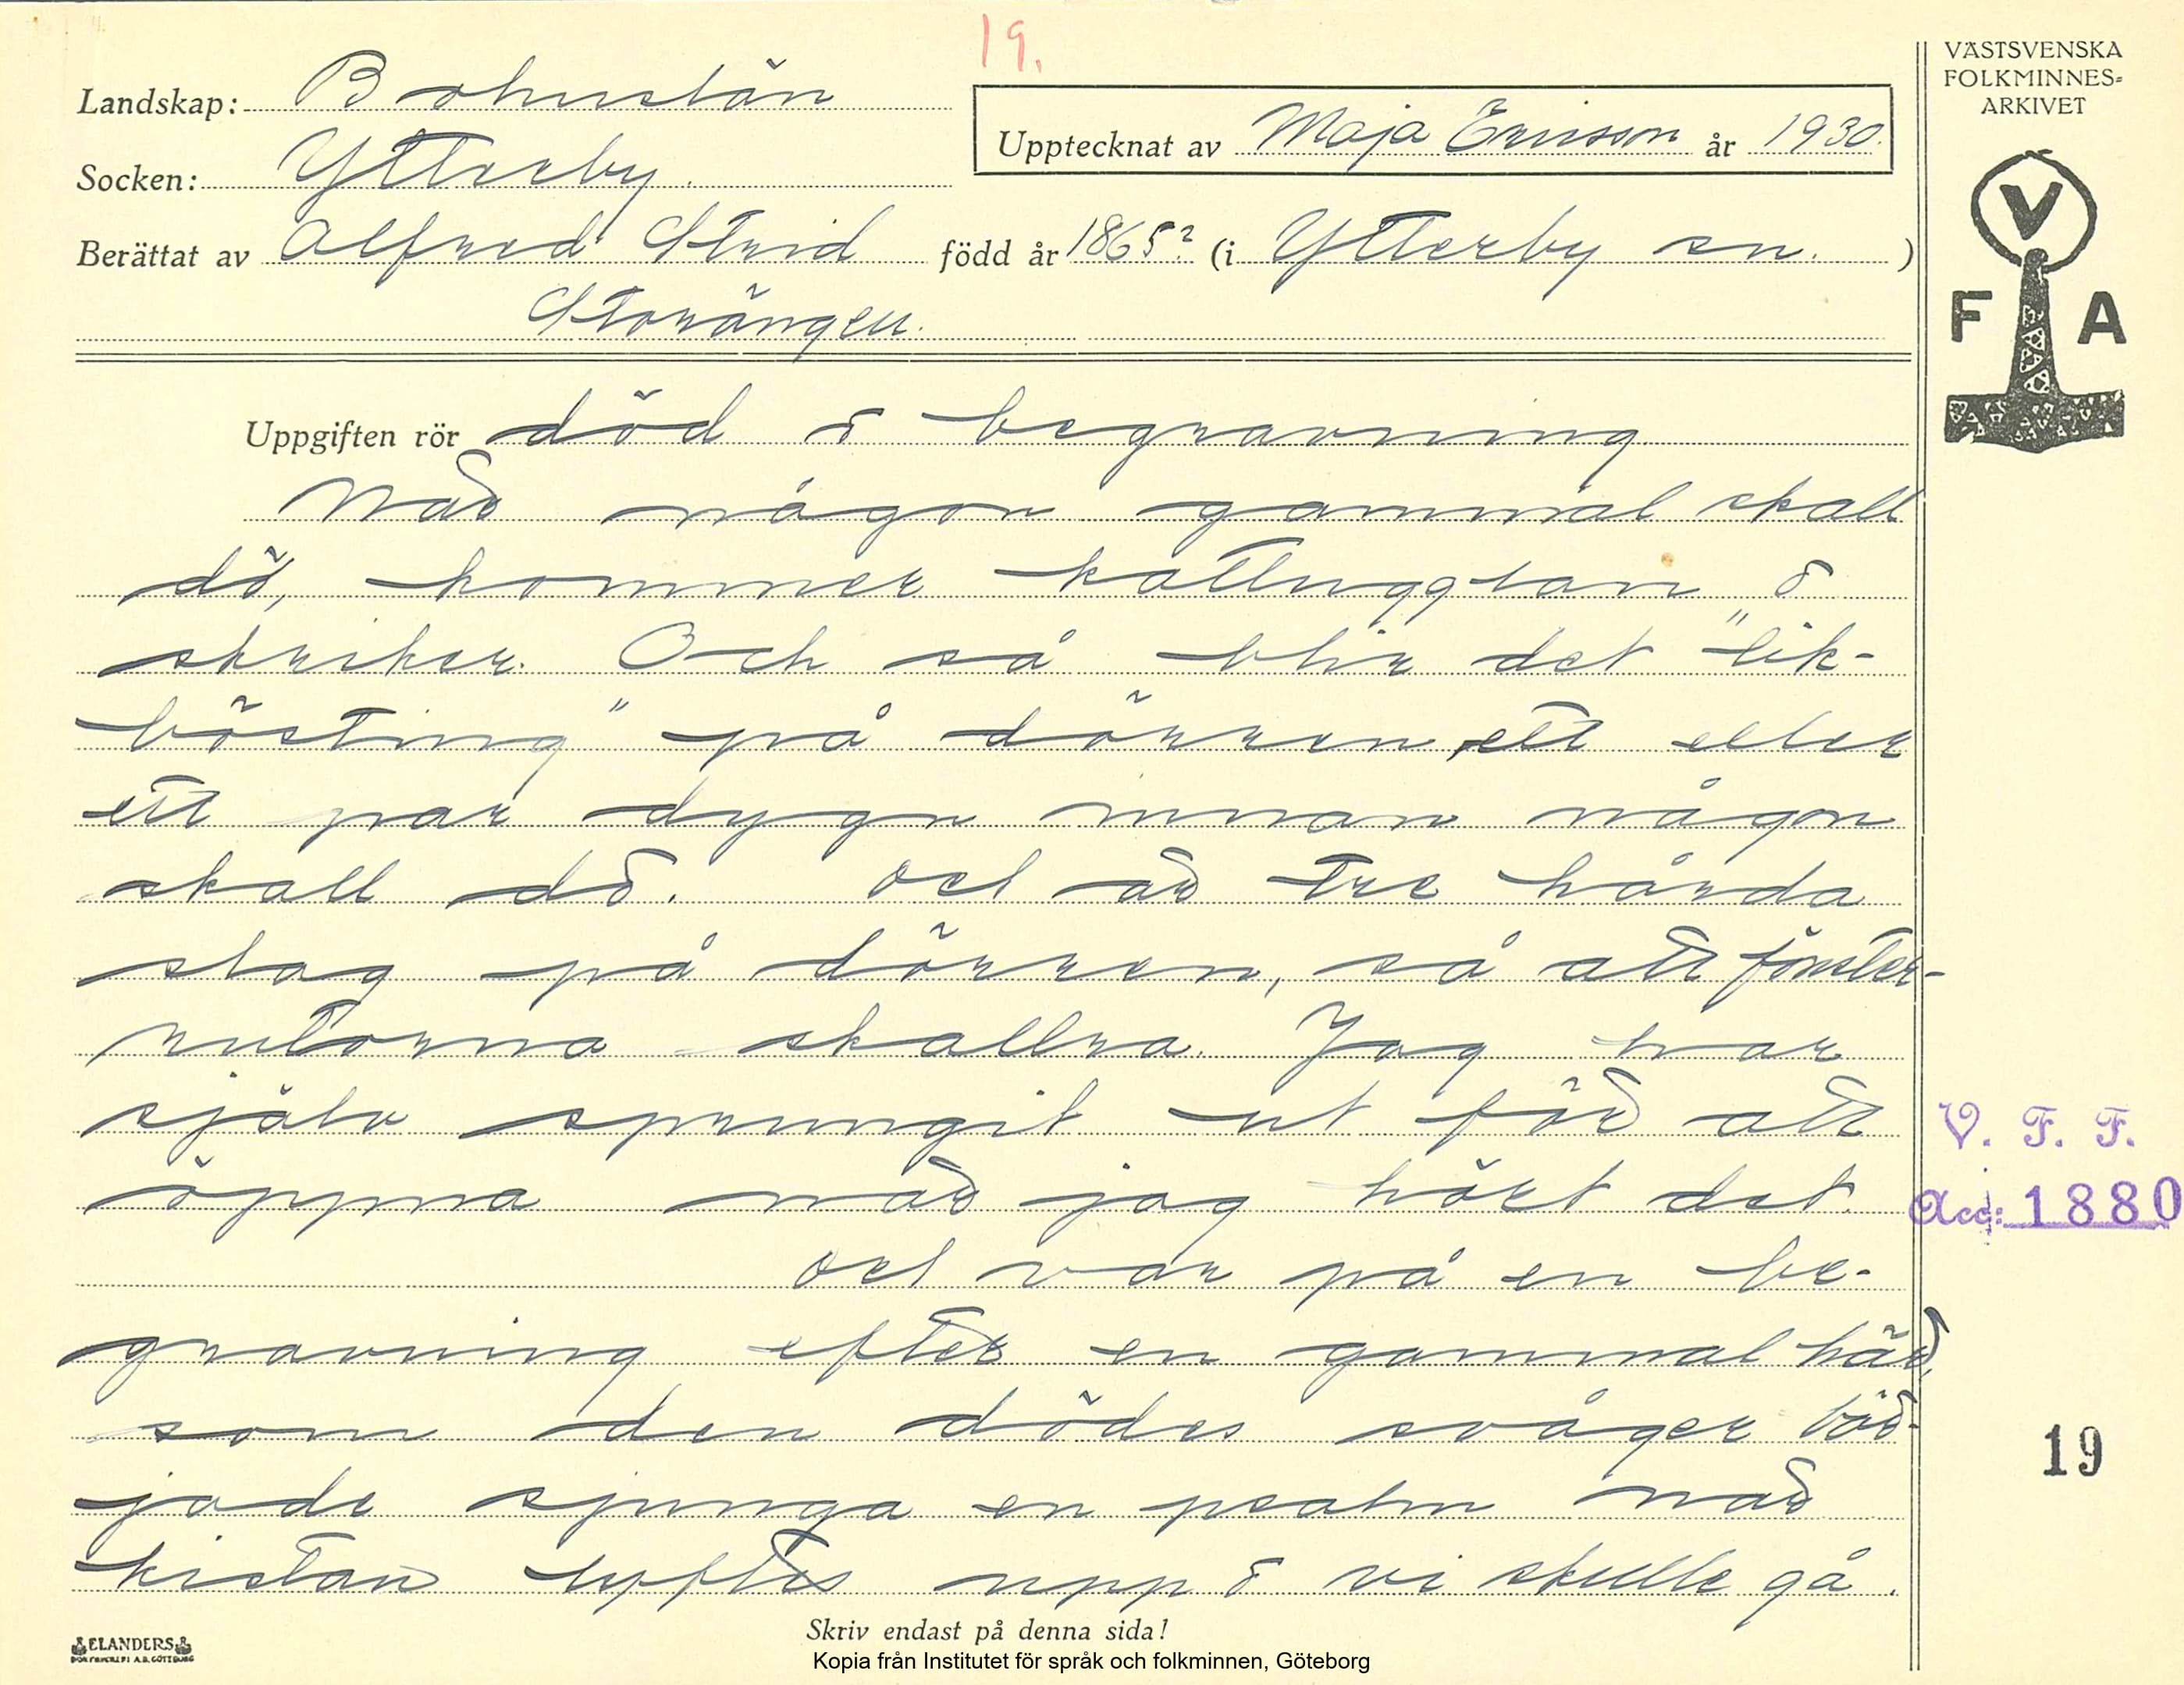 19.
Landskap: Bohuslän
Socken: Ytterby.
Upptecknat av Maja Ericsson år 1930.
Berättat av Alfred Strid född år 1865? (i Ytterby sn. )
Storängen.
VÄSTSVENSKA
FOLKMINNES-
ARKIVET
V
F A
Uppgiften rör död o begravning
När någon gammal skall
dö, kommer kattugglan o
skriker. Och så blir det "lik-
bösting" på dörren, ett eller
ett par dygn innan någon
skall dö. Det är tre hårda
slag på dörren, så att fönster-
rutorna skallra. Jag har
själv sprungit ut för att
öppna när jag hört det.
Det var på en be-
gravning efter en gammal här,
som den dödes svåger bör-
jade sjunga en psalm när
kistan lyftes upp o vi skulle gå.
V. F. F.
Acc: 1880
19
Skriv endast på denna sida!
ELANDERS
BOKTRYCKERI A.B. GÖTEBORG
Kopia från Institutet för språk och folkminnen, Göteborg